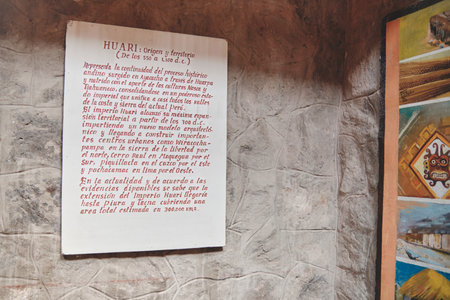 HUARI: Origen y territorio
(De los 550 a 1,100 d.c.)
Representa la continuidad del proceso histórico
andino surgido en Ayacucho a traves de Huarpa
y nutrido con el aporte de las culturas Nasca y
Tiahuanaco, consolidandose en un poderoso esta-
do imperial que unifica a casi todos los valles
de la costa y sierra del actual Perú.
El imperio Huari alcanzo su maxima expan-
sión territorial a partir de los 700 d.c.
impartiendo un nuevo modelo arquitectó-
nico y llegando a construir importan-
tes centros urbanos como Wiracocha-
pampa en la sierra de la Libertad por
el norte, Cerro Baúl en Moquegua por el
Sur, Piquillacta en el Cuzco por el Este
y pachacamac en Lima por el Oeste.
En la actualidad y de acuerdo a las
evidencias diponibles se sabe que la
extensión del Imperio Huari llegaría
hasta Piura y tacna cubriendo una
area total estimada en 300,000 km2.